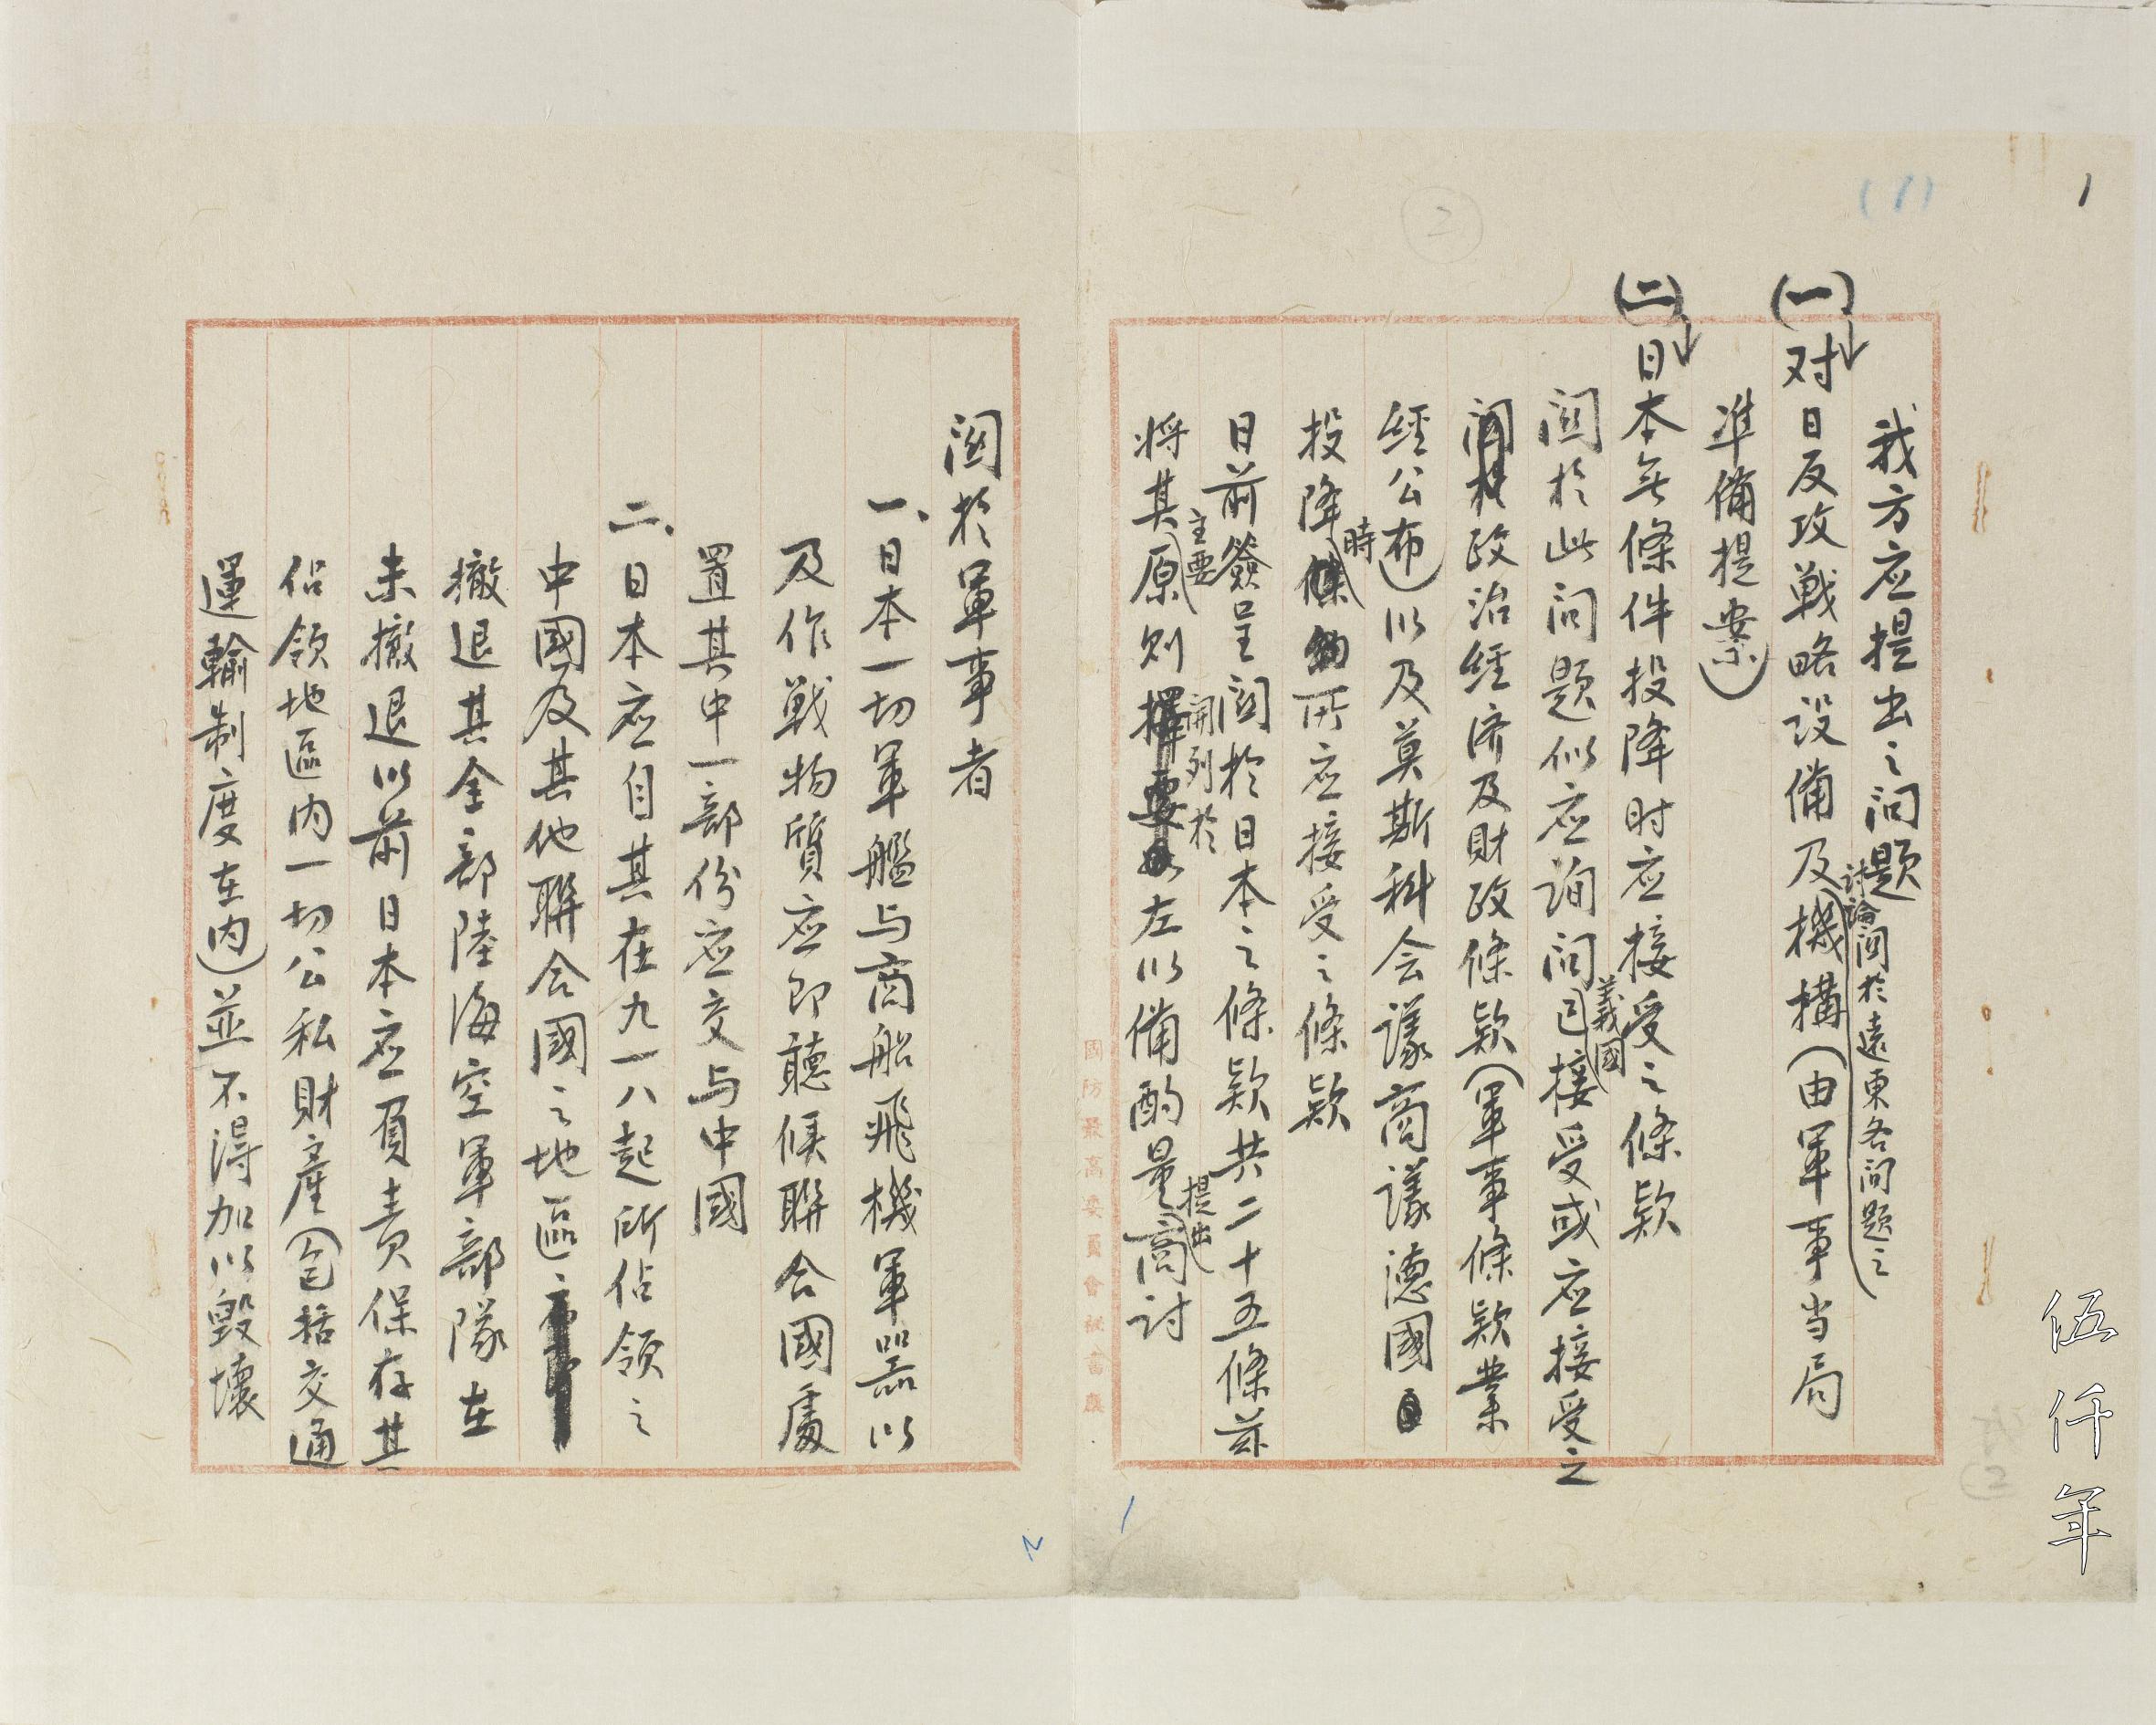 1
(1)
2
我方应提出之问题
討論関於遠東各问题之
(一)对日反攻战略设備及機構(由軍事当局
準備提案)
(二)日本无條件投降时应接受之條款
関於此问题似应詢问已接受或应接受之
義國
政治経济及財政條款(軍事條款業
経公布)以及莫斯科会議商議德國
時
投降所应接受之條款
日前簽呈関於日本之條款共二十五條兹
主要
開列於
提出
将其原则左以備酌量商讨
國防最高委員會秘書廳
関於軍事者
一、日本一切軍艦与商船飛機軍器以
及作戦物質应即聽候聯合國處
置其中一部份应交与中國
二、日本应自其在九一八起所佔領之
中國及其他聯合國之地區
撤退其全部陸海空軍部隊在
未撤退以前日本应負责保存其
佔領地區内一切公私財產(包括交通
運輸制度在内)並不得加以毁壞
1
2
(2
伍仟年